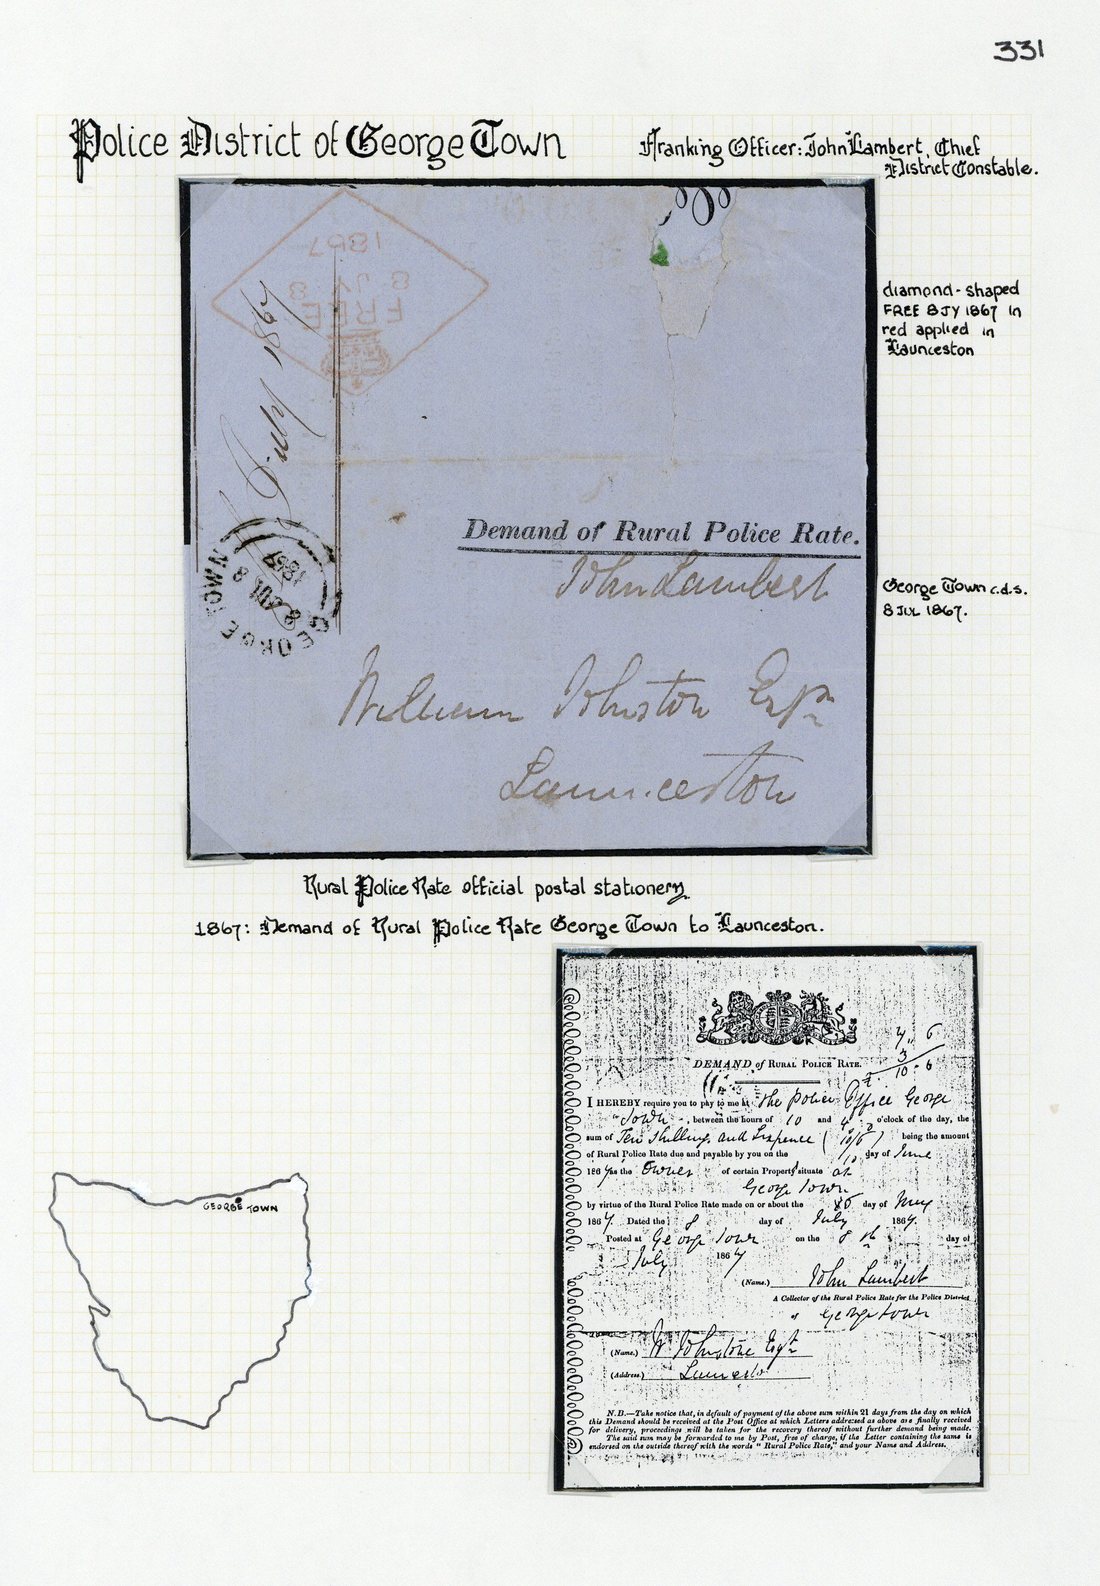 331
Police District of George Town
Franking Officer: John Lambert, Chief
District Constable.
1867
8 JY 8
FREE
July 1867
diamond-shaped
FREE 8 JY 1867 in
red applied in
Launceston
Demand of Rural Police Rate.
John Lambert
GEORGE TOWN
8 JUL 8
1867
George Town c.d.s.
8 JUL 1867.
William Johnston Esqr
Launceston
Rural Police Rate official postal stationery
1867: Demand of Rural Police Rate George Town to Launceston.
4. 6
3
10 - 6
DEMAND of RURAL POLICE RATE.
I HEREBY require you to pay to me at the Police Office George
Town, between the hours of 10 and 4 o'clock of the day, the
sum of Ten Shillings and Sixpence (10/6) being the amount
of Rural Police Rate due and payable by you on the 10 day of June
1867 as the Owner of certain Property situate at
George Town
by virtue of the Rural Police Rate made on or about the day of May
1867. Dated the 8 day of July 1867.
Posted at George Town on the 8th day of
July 1867
(Name.) John Lambert
A Collector of the Rural Police Rate for the Police District
of George Town
(Name.) W Johnstone Esqr
(Address.) Launceston
N.B.—Take notice that, in default of payment of the above sum within 21 days from the day on which
this Demand should be received at the Post Office at which Letters addressed as above are finally received
for delivery, proceedings will be taken for the recovery thereof without further demand being made.
The said sum may be forwarded to me by Post, free of charge, if the Letter containing the same is
endorsed on the outside thereof with the words "Rural Police Rate," and your Name and Address.
GEORGE TOWN